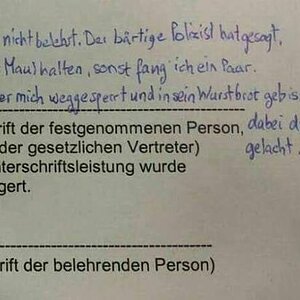 nicht belehrt. Der bärtige Polizist hat gesagt,
Maul halten, sonst fang' ich ein Paar.
er mich weggesperrt und in sein Wurstbrot gebis
rift der festgenommenen Person, dabei d
der gesetzlichen Vertreter) gelacht.
terschriftsleistung wurde
gert.
rift der belehrenden Person)